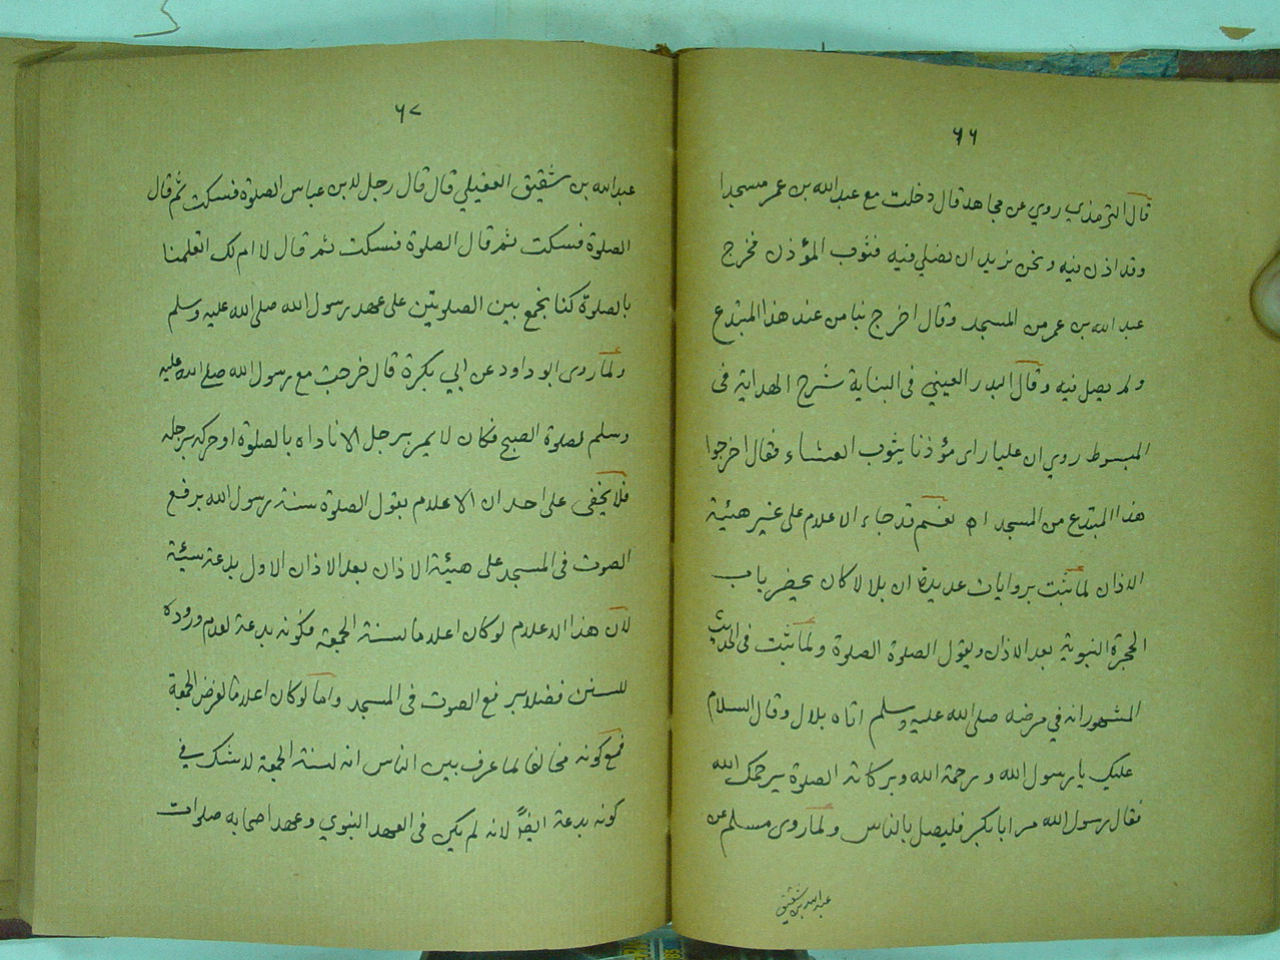 ٦٦
قال الترمذي روي عن مجاهد قال دخلت مع عبد الله بن عمر مسجدا
وقد اذن فيه ونحن نريد ان نصلي فيه فثوب المؤذن فخرج
عبد الله بن عمر من المسجد وقال اخرج بنا من عند هذا المبتدع
ولم يصل فيه وقال البدر العيني في البناية شرح الهداية في
المبسوط روي ان عليا راى مؤذنا يثوب العشاء فقال اخرجوا
هذا المبتدع من المسجد اه نعم قد جاء الاعلام على غير هيئة
الاذان لما ثبت بروايات عديدة ان بلالا كان يحضر باب
الحجرة النبوية بعد الاذان ويقول الصلوة الصلوة ولما ثبت في الحديث
المشهور انه في مرضه صلى الله عليه وسلم اتاه بلال وقال السلام
عليك يا رسول الله ورحمة الله وبركاته الصلوة يرحمك الله
فقال رسول الله مر ابا بكر فليصل بالناس ولما روى مسلم عن
عبد الله بن شقيق
٦٧
عبد الله بن شقيق العقيلي قال قال رجل لابن عباس الصلوة فسكت ثم قال
الصلوة فسكت ثم قال الصلوة فسكت ثم قال لا ام لك اتعلمنا
بالصلوة كنا نجمع بين الصلوتين على عهد رسول الله صلى الله عليه وسلم
ولما روى ابو داود عن ابي بكرة قال خرجت مع رسول الله صلى الله عليه
وسلم لصلوة الصبح فكان لا يمر برجل الا ناداه بالصلوة او حركه برجله
فلا يخفى على احد ان الاعلام بقول الصلوة سنة رسول الله برفع
الصوت في المسجد على هيئة الاذان بعد الاذان الاول بدعة سيئة
لان هذا الاعلام لو كان اعلاما لسنة الجمعة فكونه بدعة لعدم وروده
للسنن فضلا برفع الصوت في المسجد واما لو كان اعلاما لفرض الجمعة
فمع كونه مخالفا لما عرف بين الناس انه لسنة الجمعة لا شك في
كونه بدعة ايضًا لانه لم يكن في العهد النبوي وعهد اصحابه صلوات